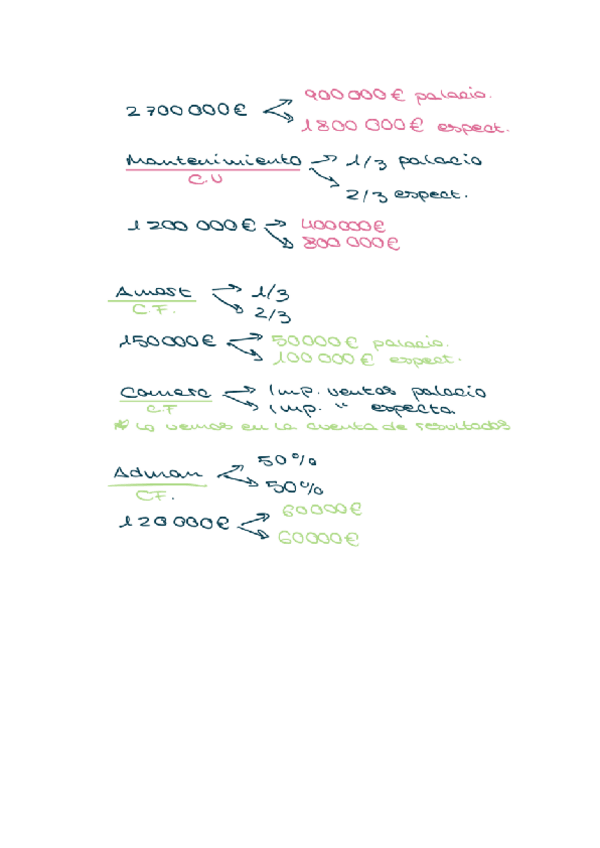 900 000 € palacio.
2 700 000 €
1 800 000 € espect.
Mantenimiento → 1/3 palacio
C.V
2/3 espect.
1 200 000 € → 400 000 €
800 000 €
Amort → 1/3
C.F. 2/3
150 000 € → 50 000 € palacio.
100 000 € espect.
Comerc → Imp. ventas palacio
C.F Imp. " especta.
* Lo vemos en la cuenta de resultados
50%
Admon
50%
C.F.
60 000 €
120 000 €
60 000 €